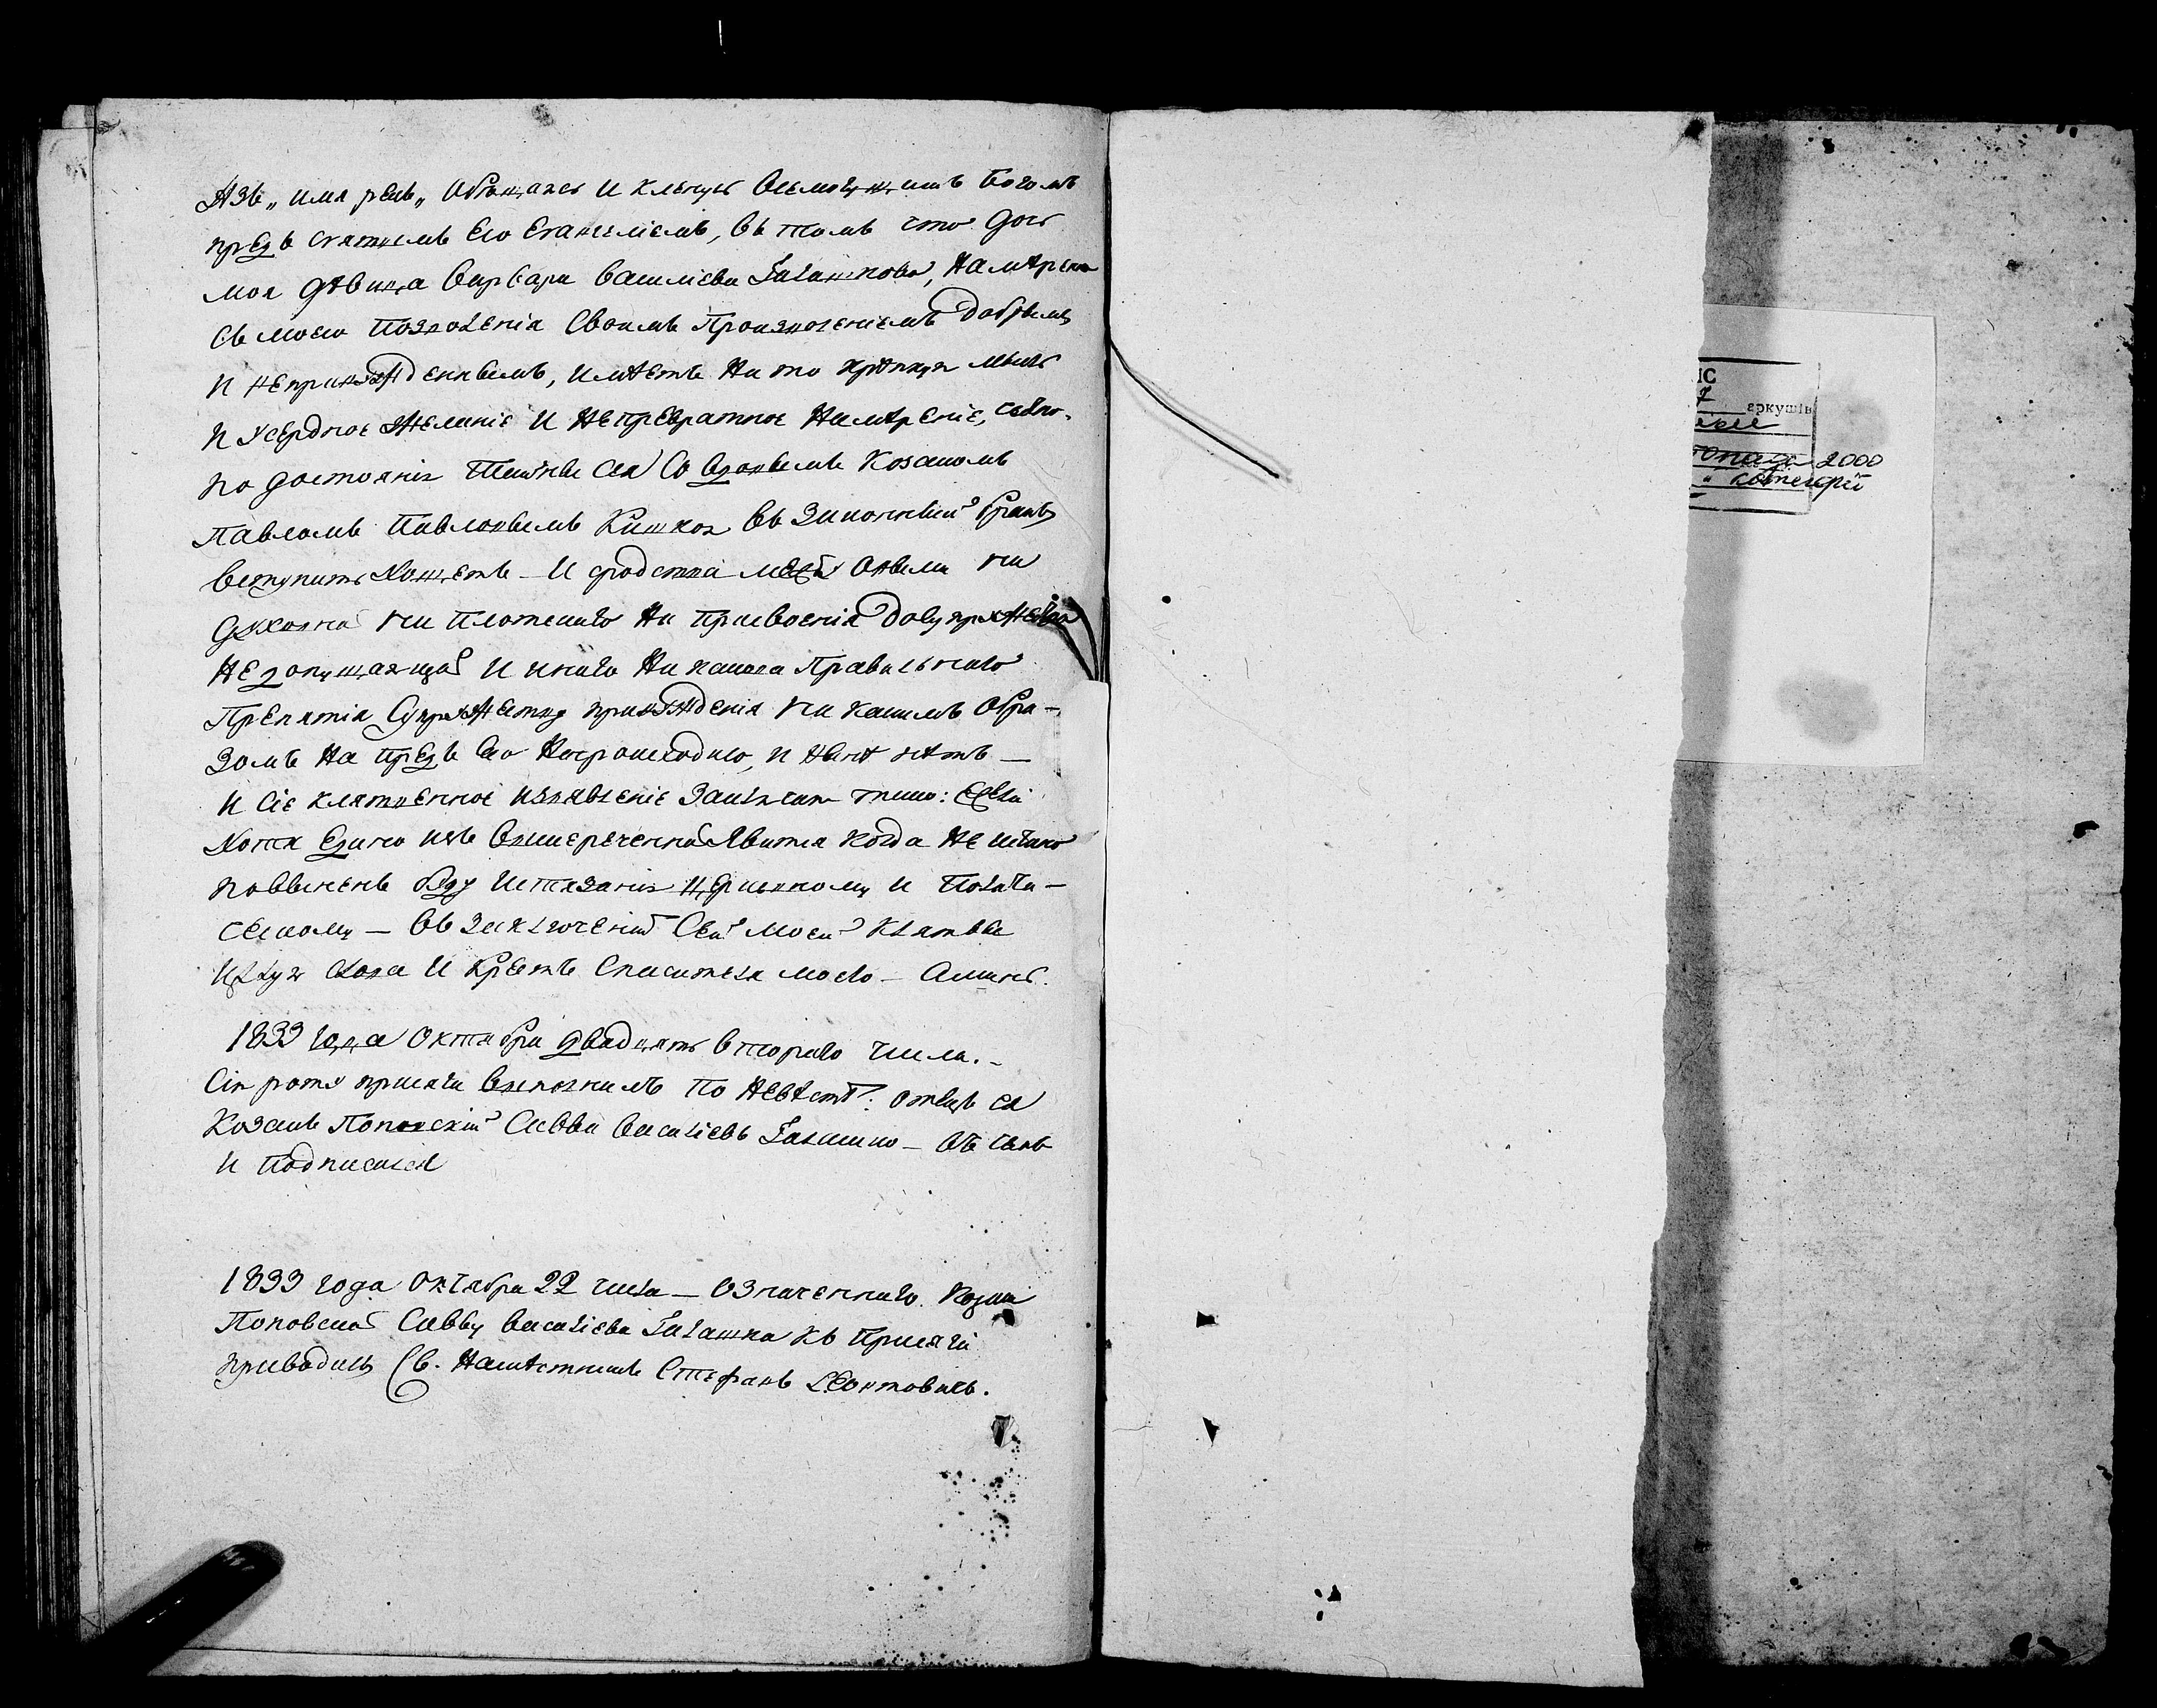 Азъ „имя рекъ„ Обѣщаюсь и кленусь Всемогущимъ Богомъ
предъ святымъ Его Евангеліемъ, въ томъ что дочь
моя дѣвица Варвара Василіева Галашкова, намѣрена
съ моего позволенія своимъ произволеніемъ добрымъ
и непринужденнымъ, имѣетъ на то крѣпкую мысль
и усердное желаніе и непревратное намѣреніе,
по достоянію со вдовымъ козакомъ
Павломъ Павловымъ Кишкою въ законный бракъ
вступить хощетъ — и сродства межъ обѣми ни
духовна ни плотскаго ни присвоенія до супружества
не допущающа и инаго никакова правильнаго
препятія супружеству принужденія ни какимъ обра-
зомъ на предъ сего непроисходило, и нынѣ нѣтъ —
и сіе клятвенное изъявленіе заключаю тимо: Если
хотя едино изъ вышереченна явится когда не истинно
повиненъ буду истязанію церковному и полити-
ческому — въ заключеніи сей моей клятвы
цѣлую слова и крестъ спасителя моего — Аминь.
1833 года октября двадцять втораго числа. —
Сію роту присяги выполнилъ по невѣстѣ: отецъ ея
козакъ Поповскій Савва Василіевъ Галашко — въ чемъ
и подписался
1833 года октября 22 числа — означеннаго козака
Поповска Савву Василіева Галашка къ присягѣ
приводилъ Св. Намѣстникъ Стефанъ Леонтовичъ.
ІС
аркушів
2000
категорії